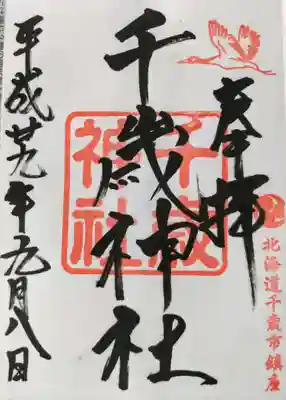 奉拝
北海道千歳市鎮座
千歳神社
千歳神社
平成廿九年九月八日